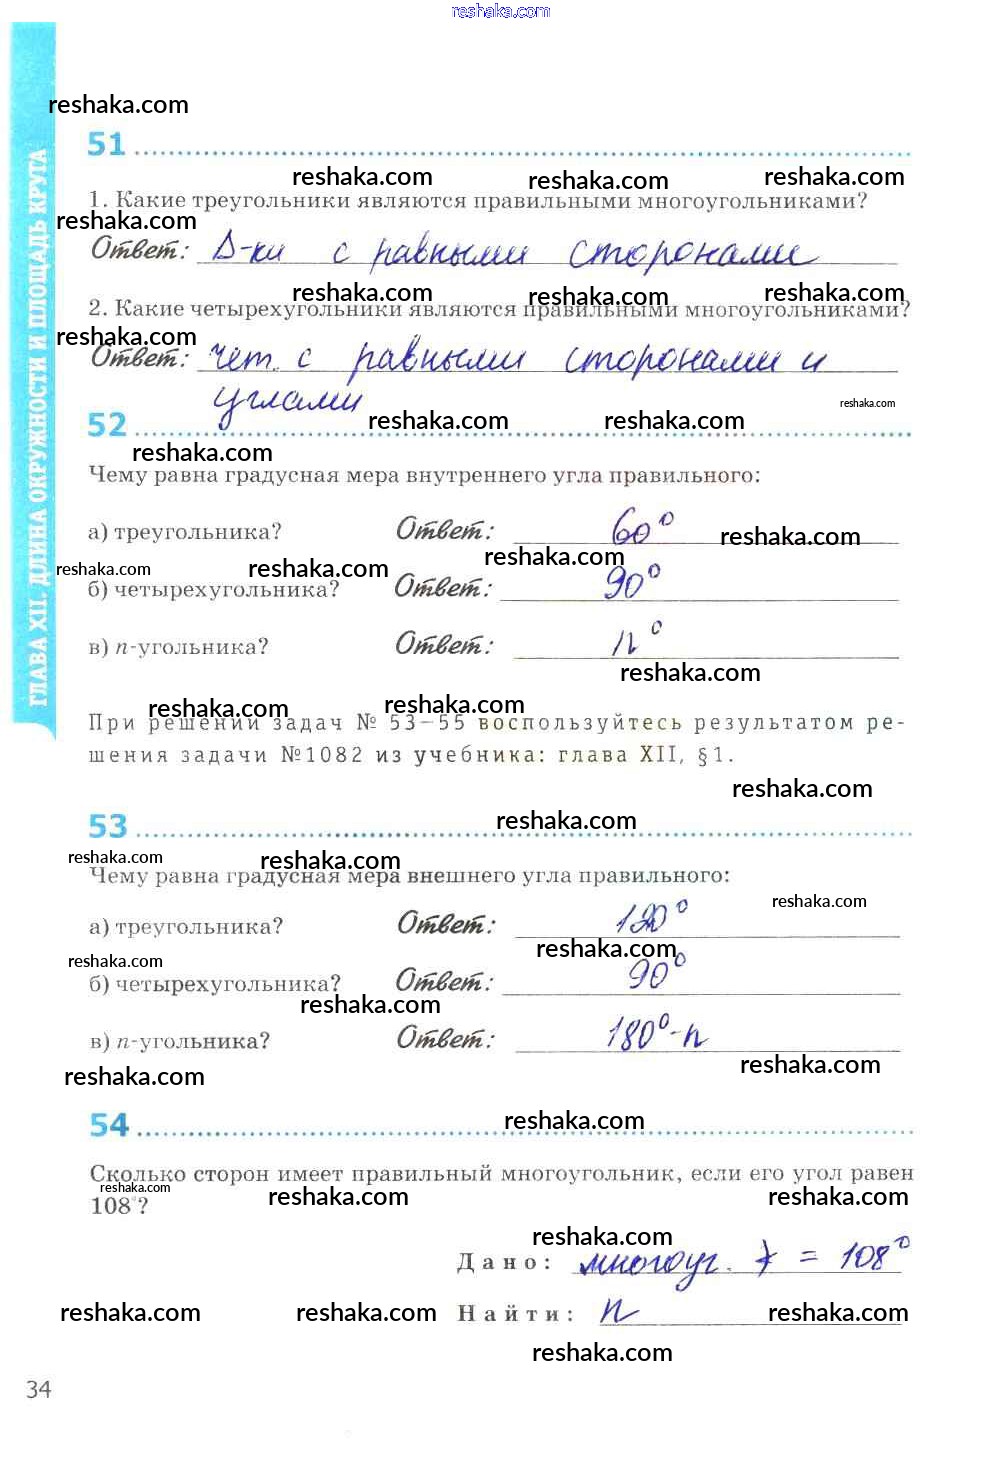 reshaka.com
reshaka.com
51
reshaka.com reshaka.com reshaka.com
1. Какие треугольники являются правильными многоугольниками?
reshaka.com
Ответ: Δ-ки с равными сторонами
reshaka.com reshaka.com reshaka.com
2. Какие четырехугольники являются правильными многоугольниками?
reshaka.com
Ответ: чет. с равными сторонами и
углами
reshaka.com
52 reshaka.com reshaka.com
reshaka.com
Чему равна градусная мера внутреннего угла правильного:
а) треугольника? Ответ: 60°
reshaka.com
reshaka.com reshaka.com reshaka.com
б) четырехугольника? Ответ: 90°
в) n-угольника? Ответ: n°
reshaka.com
reshaka.com reshaka.com
При решении задач № 53–55 воспользуйтесь результатом ре-
шения задачи №1082 из учебника: глава XII, §1.
reshaka.com
53 reshaka.com
reshaka.com reshaka.com
Чему равна градусная мера внешнего угла правильного:
reshaka.com
а) треугольника? Ответ: 120°
reshaka.com
reshaka.com
б) четырехугольника? Ответ: 90°
reshaka.com
в) n-угольника? Ответ: 180°-n
reshaka.com reshaka.com
54 reshaka.com
Сколько сторон имеет правильный многоугольник, если его угол равен
reshaka.com reshaka.com reshaka.com
108°?
reshaka.com
Дано: многоуг. = 108°
reshaka.com reshaka.com reshaka.com
Найти: n
reshaka.com
34
ГЛАВА XII. ДЛИНА ОКРУЖНОСТИ И ПЛОЩАДЬ КРУГА